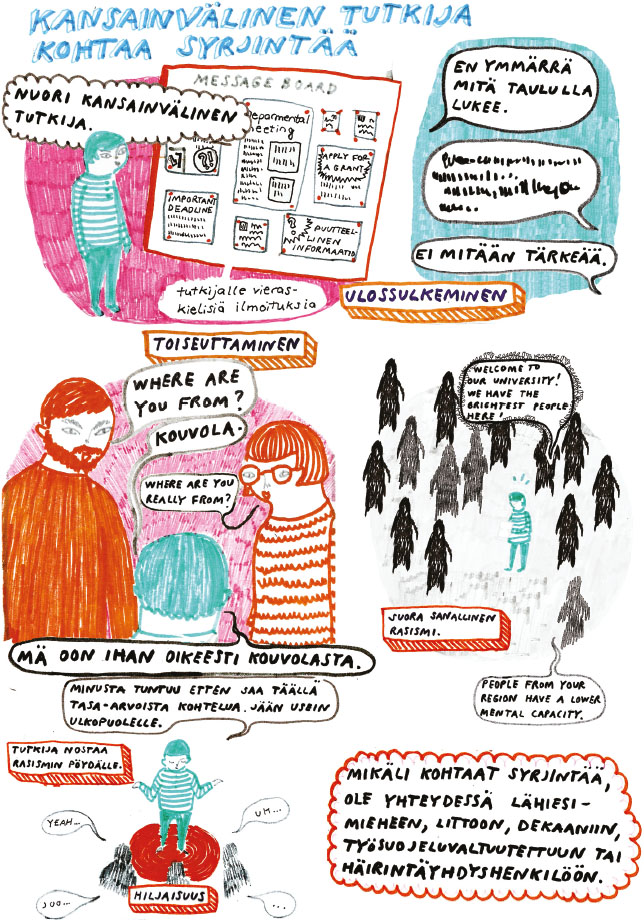 KANSAINVÄLINEN TUTKIJA
KOHTAA SYRJINTÄÄ
NUORI KANSAINVÄLINEN
TUTKIJA.
MESSAGE BOARD
Deparmental
meeting
APPLY FOR
A GRANT
IMPORTANT
DEADLINE
PUUTTEEL-
LINEN
INFORMAATIO
tutkijalle vieras-
kielisiä ilmoituksia
EN YMMÄRRÄ
MITÄ TAULULLA
LUKEE.
EI MITÄÄN TÄRKEÄÄ.
ULOSSULKEMINEN
TOISEUTTAMINEN
WHERE ARE
YOU FROM?
KOUVOLA.
WHERE ARE YOU
REALLY FROM?
MÄ OON IHAN OIKEESTI KOUVOLASTA.
WELCOME TO
OUR UNIVERSITY!
WE HAVE THE
BRIGHTEST PEOPLE
HERE!
SUORA SANALLINEN
RASISMI.
PEOPLE FROM YOUR
REGION HAVE A LOWER
MENTAL CAPACITY.
MINUSTA TUNTUU ETTEN SAA TÄÄLLÄ
TASA-ARVOISTA KOHTELUA. JÄÄN USEIN
ULKOPUOLELLE.
TUTKIJA NOSTAA
RASISMIN PÖYDÄLLE.
YEAH...
UM...
JOO...
...
HILJAISUUS
MIKÄLI KOHTAAT SYRJINTÄÄ,
OLE YHTEYDESSÄ LÄHIESI-
MIEHEEN, LIITTOON, DEKAANIIN,
TYÖSUOJELUVALTUUTETTUUN TAI
HÄIRINTÄYHDYSHENKILÖÖN.